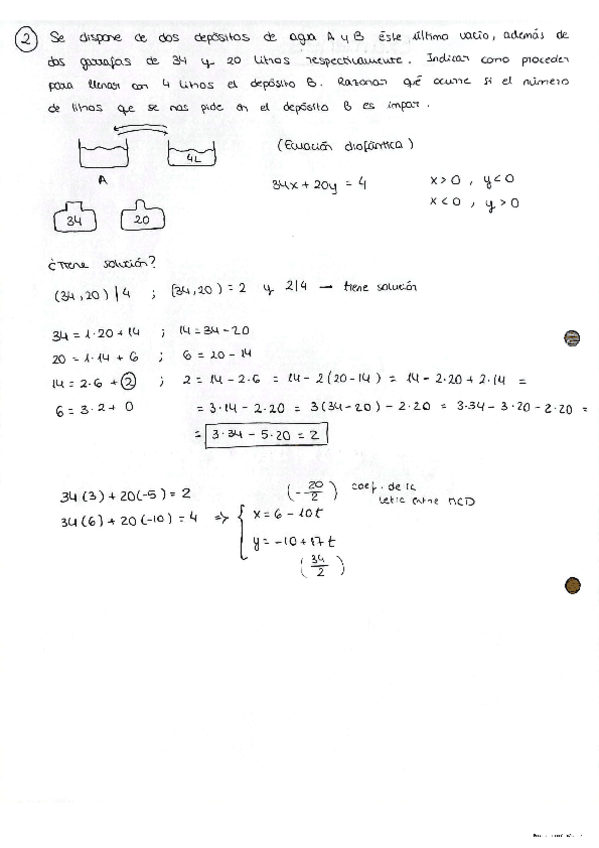 2 Se dispone de dos depósitos de agua A y B éste último vacio, además de
dos garrafas de 34 y 20 litros respectivamente. Indicar como proceder
para llenar con 4 litros el depósito B. Razonar qué ocurre si el número
de litros que se nos pide en el depósito B es impar.
4L
A
34 20
(Ecuación diofántica)
34x + 20y = 4 x>0, y<0
x<0, y>0
¿Tiene solución?
(34,20)|4 ; (34,20) = 2 y 2|4 → tiene solución
34 = 1·20 + 14 ; 14 = 34 - 20
20 = 1·14 + 6 ; 6 = 20 - 14
14 = 2·6 + 2 ; 2 = 14 - 2·6 = 14 - 2(20-14) = 14 - 2·20 + 2·14 =
6 = 3·2 + 0 = 3·14 - 2·20 = 3(34-20) - 2·20 = 3·34 - 3·20 - 2·20 =
= 3·34 - 5·20 = 2
34(3) + 20(-5) = 2
34(6) + 20(-10) = 4 ⇒ { x = 6 - 10t
(-20/2) coef. de la
letra entre MCD
y = -10 + 17t
(34/2)